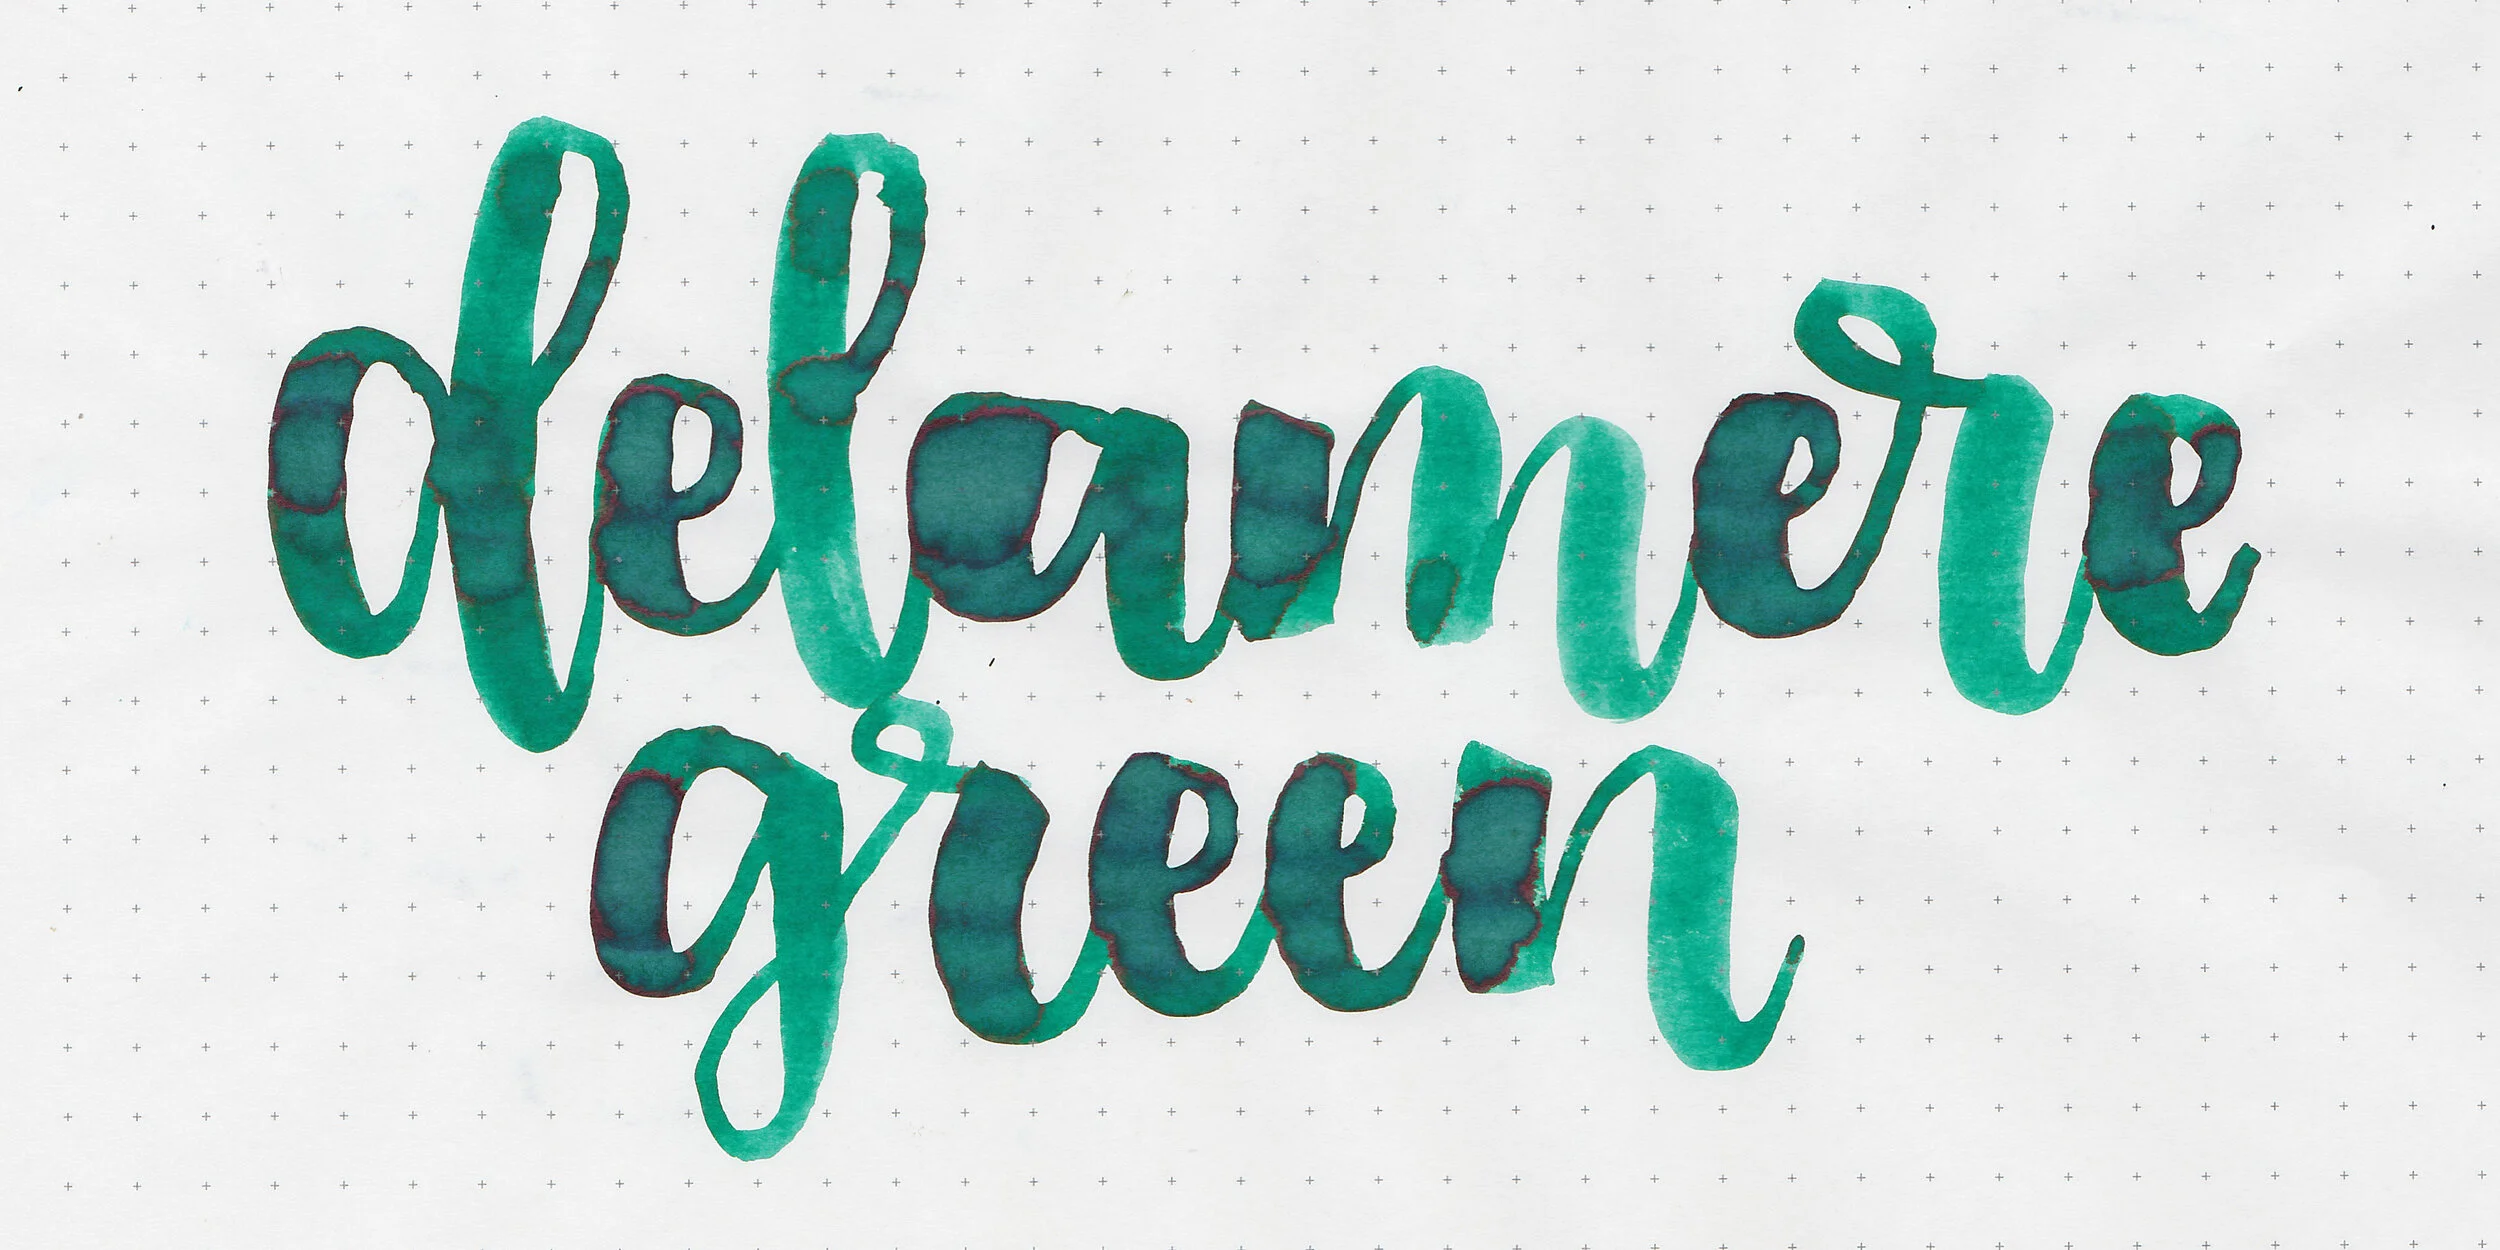 delamere
green